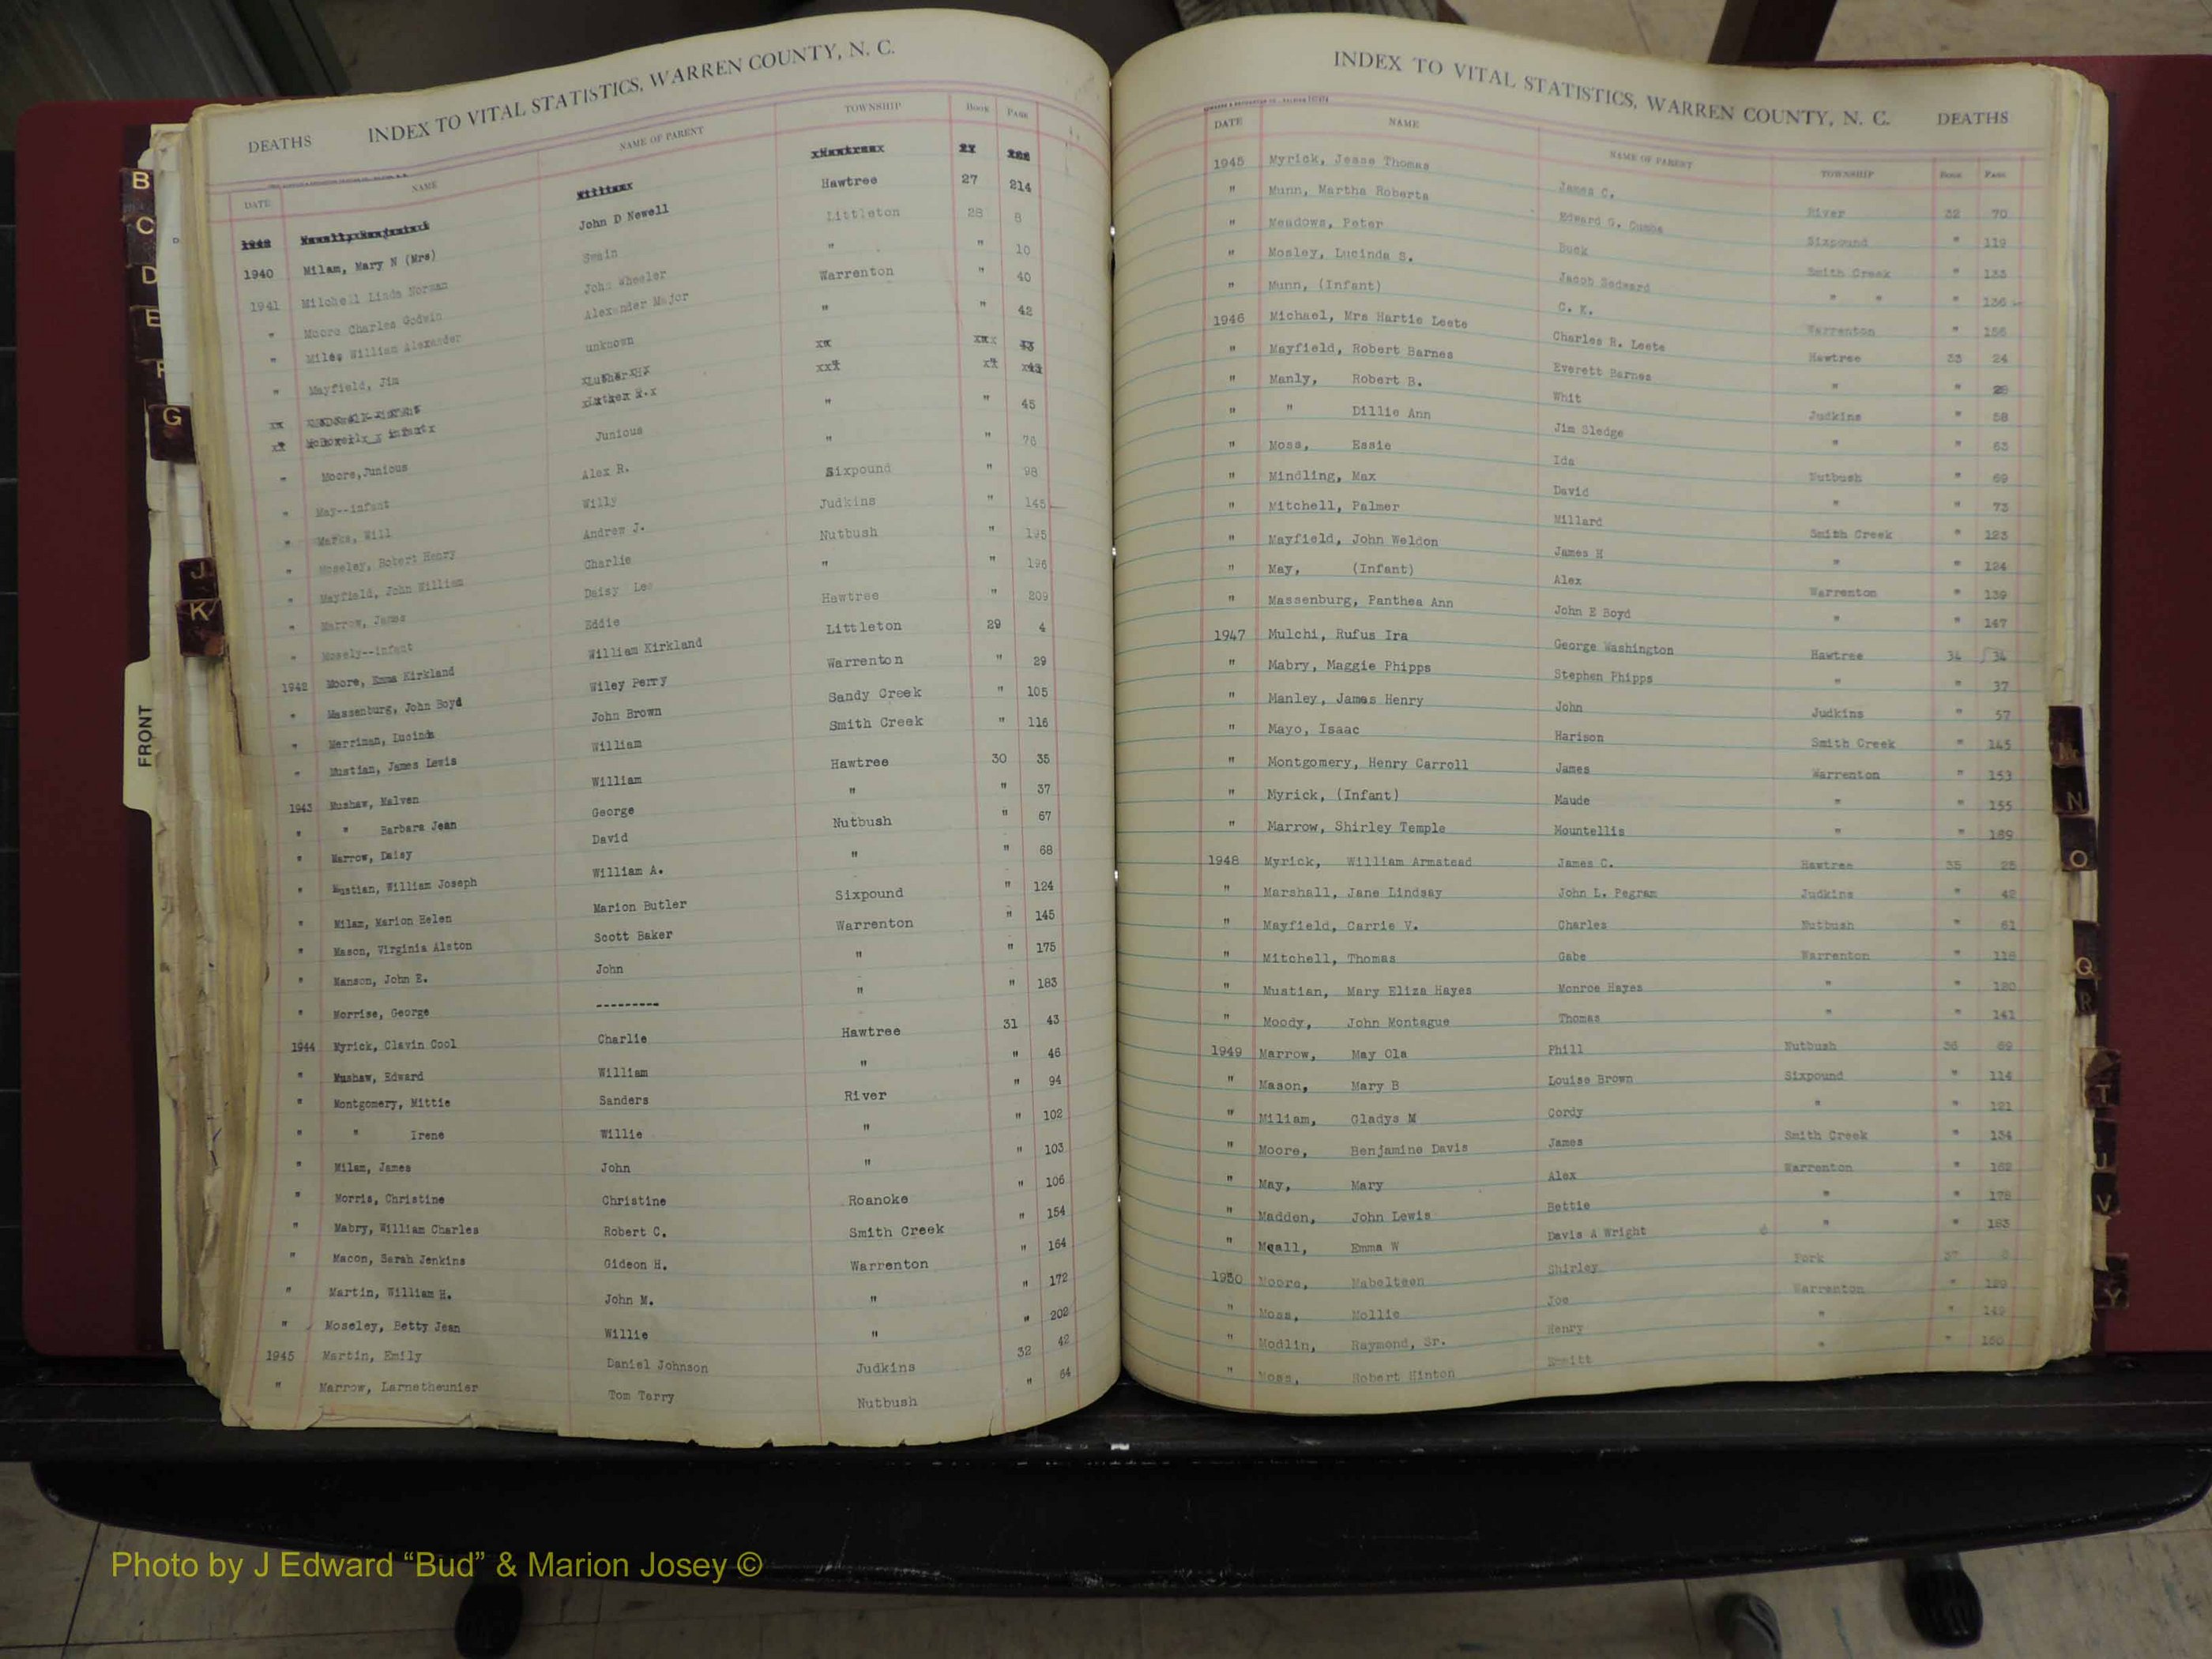 DEATHS INDEX TO VITAL STATISTICS, WARREN COUNTY, N. C.
DATE NAME NAME OF PARENT TOWNSHIP Book Page
1940 Milam, Mary N (Mrs) John D Newell Hawtree 27 214
1941 Milchell Linda Norman Swain Littleton 28 8
" Moore Charles Godwin John Wheeler " " 10
" Miles William Alexander Alexander Major Warrenton " 40
" Mayfield, Jim unknown " " 42
" Moore,Junious Junious " " 45
" May--infant Alex R. " " 76
" Marks, Will Willy Sixpound " 98
" Moseley, Robert Henry Andrew J. Judkins " 145
" Mayfield, John William Charlie Nutbush " 195
" Marrow, James Daisy Lee " " 196
" Mosely--infant Eddie Hawtree " 209
1942 Moore, Emma Kirkland William Kirkland Littleton 29 4
" Massenburg, John Boyd Wiley Perry Warrenton " 29
" Merriman, Lucinda John Brown Sandy Creek " 105
" Mustian, James Lewis William Smith Creek " 116
1943 Mushaw, Malven William Hawtree 30 35
" " Barbara Jean George " " 37
" Marrow, Daisy David Nutbush " 67
" Mustian, William Joseph William A. " " 68
" Milam, Marion Helen Marion Butler Sixpound " 124
" Mason, Virginia Alston Scott Baker Warrenton " 145
" Manson, John E. John " " 175
" Morrise, George --------- " " 183
1944 Myrick, Clavin Cool Charlie Hawtree 31 43
" Mushaw, Edward William " " 46
" Montgomery, Mittie Sanders River " 94
" " Irene Willie " " 102
" Milam, James John " " 103
" Morris, Christine Christine Roanoke " 106
" Mabry, William Charles Robert C. Smith Creek " 154
" Macon, Sarah Jenkins Gideon H. Warrenton " 164
" Martin, William H. John M. " " 172
" Moseley, Betty Jean Willie " " 202
1945 Martin, Emily Daniel Johnson Judkins 32 42
" Marrow, Larnetheunier Tom Terry Nutbush " 64
INDEX TO VITAL STATISTICS, WARREN COUNTY, N. C. DEATHS
DATE NAME NAME OF PARENT TOWNSHIP Book Page
1945 Myrick, Jesse Thomas James C. River 32 70
" Munn, Martha Roberta Edward G. Cumbs Sixpound " 119
" Meadows, Peter Buck Smith Creek " 133
" Mosley, Lucinda S. Jacob Sedward " " " 136
" Munn, (Infant) C. K. Warrenton " 156
1946 Michael, Mrs Hartie Leete Charles R. Leete Hawtree 33 24
" Mayfield, Robert Barnes Everett Barnes " " 28
" Manly, Robert B. Whit Judkins " 58
" " Dillie Ann Jim Sledge " " 63
" Moss, Essie Ida Nutbush " 69
" Mindling, Max David " " 73
" Mitchell, Palmer Millard Smith Creek " 123
" Mayfield, John Weldon James H " " 124
" May, (Infant) Alex Warrenton " 139
" Massenburg, Panthea Ann John E Boyd " " 147
1947 Mulchi, Rufus Ira George Washington Hawtree 34 34
" Mabry, Maggie Phipps Stephen Phipps " " 37
" Manley, James Henry John Judkins " 57
" Mayo, Isaac Harison Smith Creek " 145
" Montgomery, Henry Carroll James Warrenton " 153
" Myrick, (Infant) Maude " " 155
" Marrow, Shirley Temple Mountellis " " 189
1948 Myrick, William Armstead James C. Hawtree 35 25
" Marshall, Jane Lindsay John L. Pegram Judkins " 42
" Mayfield, Carrie V. Charles Nutbush " 61
" Mitchell, Thomas Gabe Warrenton " 118
" Mustian, Mary Eliza Hayes Monroe Hayes " " 120
" Moody, John Montague Thomas " " 141
1949 Marrow, May Ola Phill Nutbush 36 69
" Mason, Mary B Louise Brown Sixpound " 114
" Miliam, Gladys M Cordy " " 121
" Moore, Benjamine Davis James Smith Creek " 134
" May, Mary Alex Warrenton " 162
" Madden, John Lewis Bettie " " 178
" Mcall, Emma W Davis A Wright " " 183
1950 Moore, Mabelteen Shirley Fork 37 8
" Moss, Mollie Joe Warrenton " 129
" Modlin, Raymond, Sr. Henry " " 149
" Moss, Robert Hinton " " 150
B
C
D
E
F
G
J
K
FRONT
N
O
Q
R
T
U
V
Y
Photo by J Edward “Bud” & Marion Josey ©